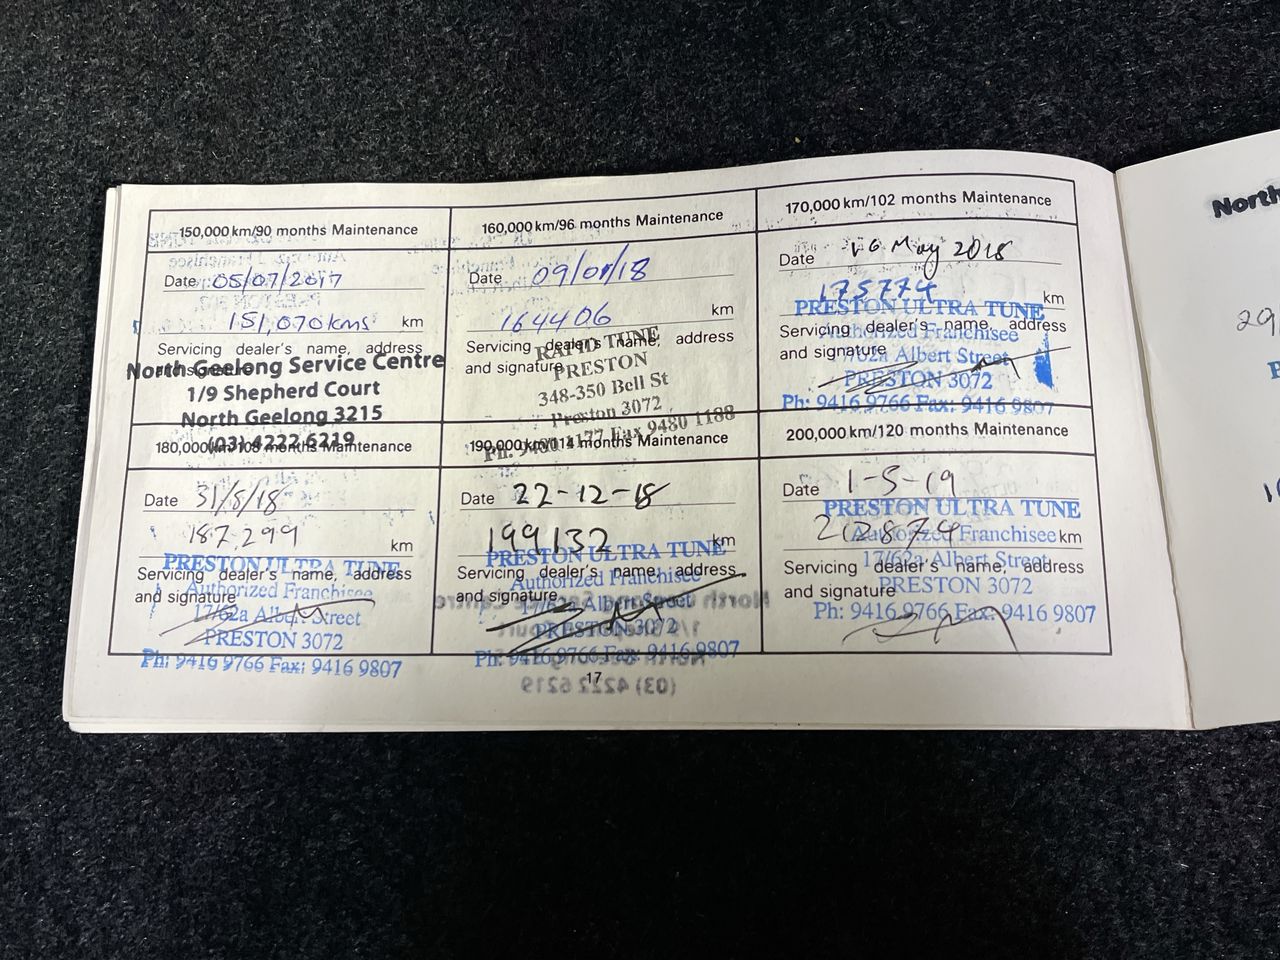 150,000 km/90 months Maintenance
Date 05/07/2017
151,070 kms km
Servicing dealer's name, address
and signature
North Geelong Service Centre
1/9 Shepherd Court
North Geelong 3215
(03) 4222 6219
160,000 km/96 months Maintenance
Date 09/01/18
164406 km
Servicing dealer's name, address
and signature
RAPID TUNE
PRESTON
348-350 Bell St
Preston 3072
Ph. 9480 4177 Fax 9480 1188
170,000 km/102 months Maintenance
Date 16 May 2018
175774 km
PRESTON ULTRA TUNE
Servicing dealer's name, address
Authorized Franchisee
and signature
Albert Street
PRESTON 3072
Ph: 9416 9766 Fax: 9416 9807
180,000 km/108 months Maintenance
Date 31/8/18
187,299 km
PRESTON ULTRA TUNE
Servicing dealer's name, address
Authorized Franchisee
and signature
17/62a Albert Street
PRESTON 3072
Ph: 9416 9766 Fax: 9416 9807
190,000 km/114 months Maintenance
Date 22-12-18
199132 km
PRESTON ULTRA TUNE
Servicing dealer's name, address
Authorized Franchisee
and signature
17/62a Albert Street
PRESTON 3072
Ph: 9416 9766 Fax: 9416 9807
200,000 km/120 months Maintenance
Date 1-5-19
PRESTON ULTRA TUNE
212874 km
Authorized Franchisee
17/62a Albert Street
Servicing dealer's name, address
PRESTON 3072
and signature
Ph: 9416 9766 Fax: 9416 9807
17
North
29